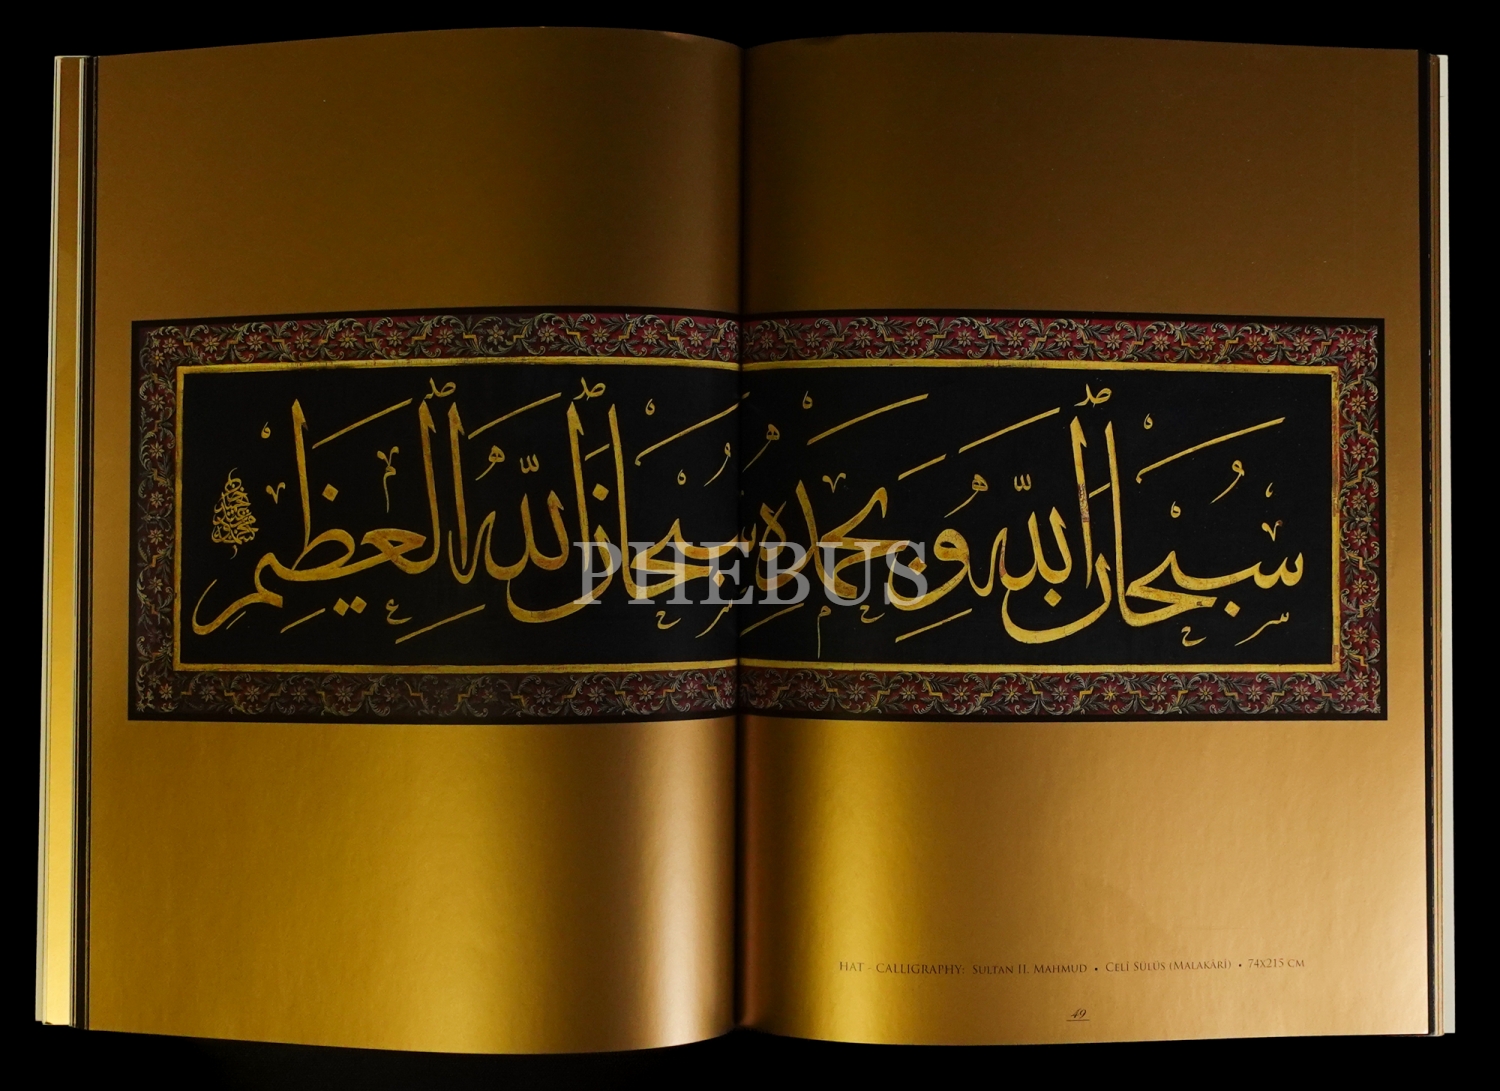 سُبْحَانَ اللّٰهِ وَبِحَمْدِهِ سُبْحَانَ اللّٰهِ الْعَظِيمِ
PHEBUS
HAT - CALLIGRAPHY: SULTAN II. MAHMUD • CELÎ SÜLÜS (MALAKÂRÎ) • 74X215 CM
49